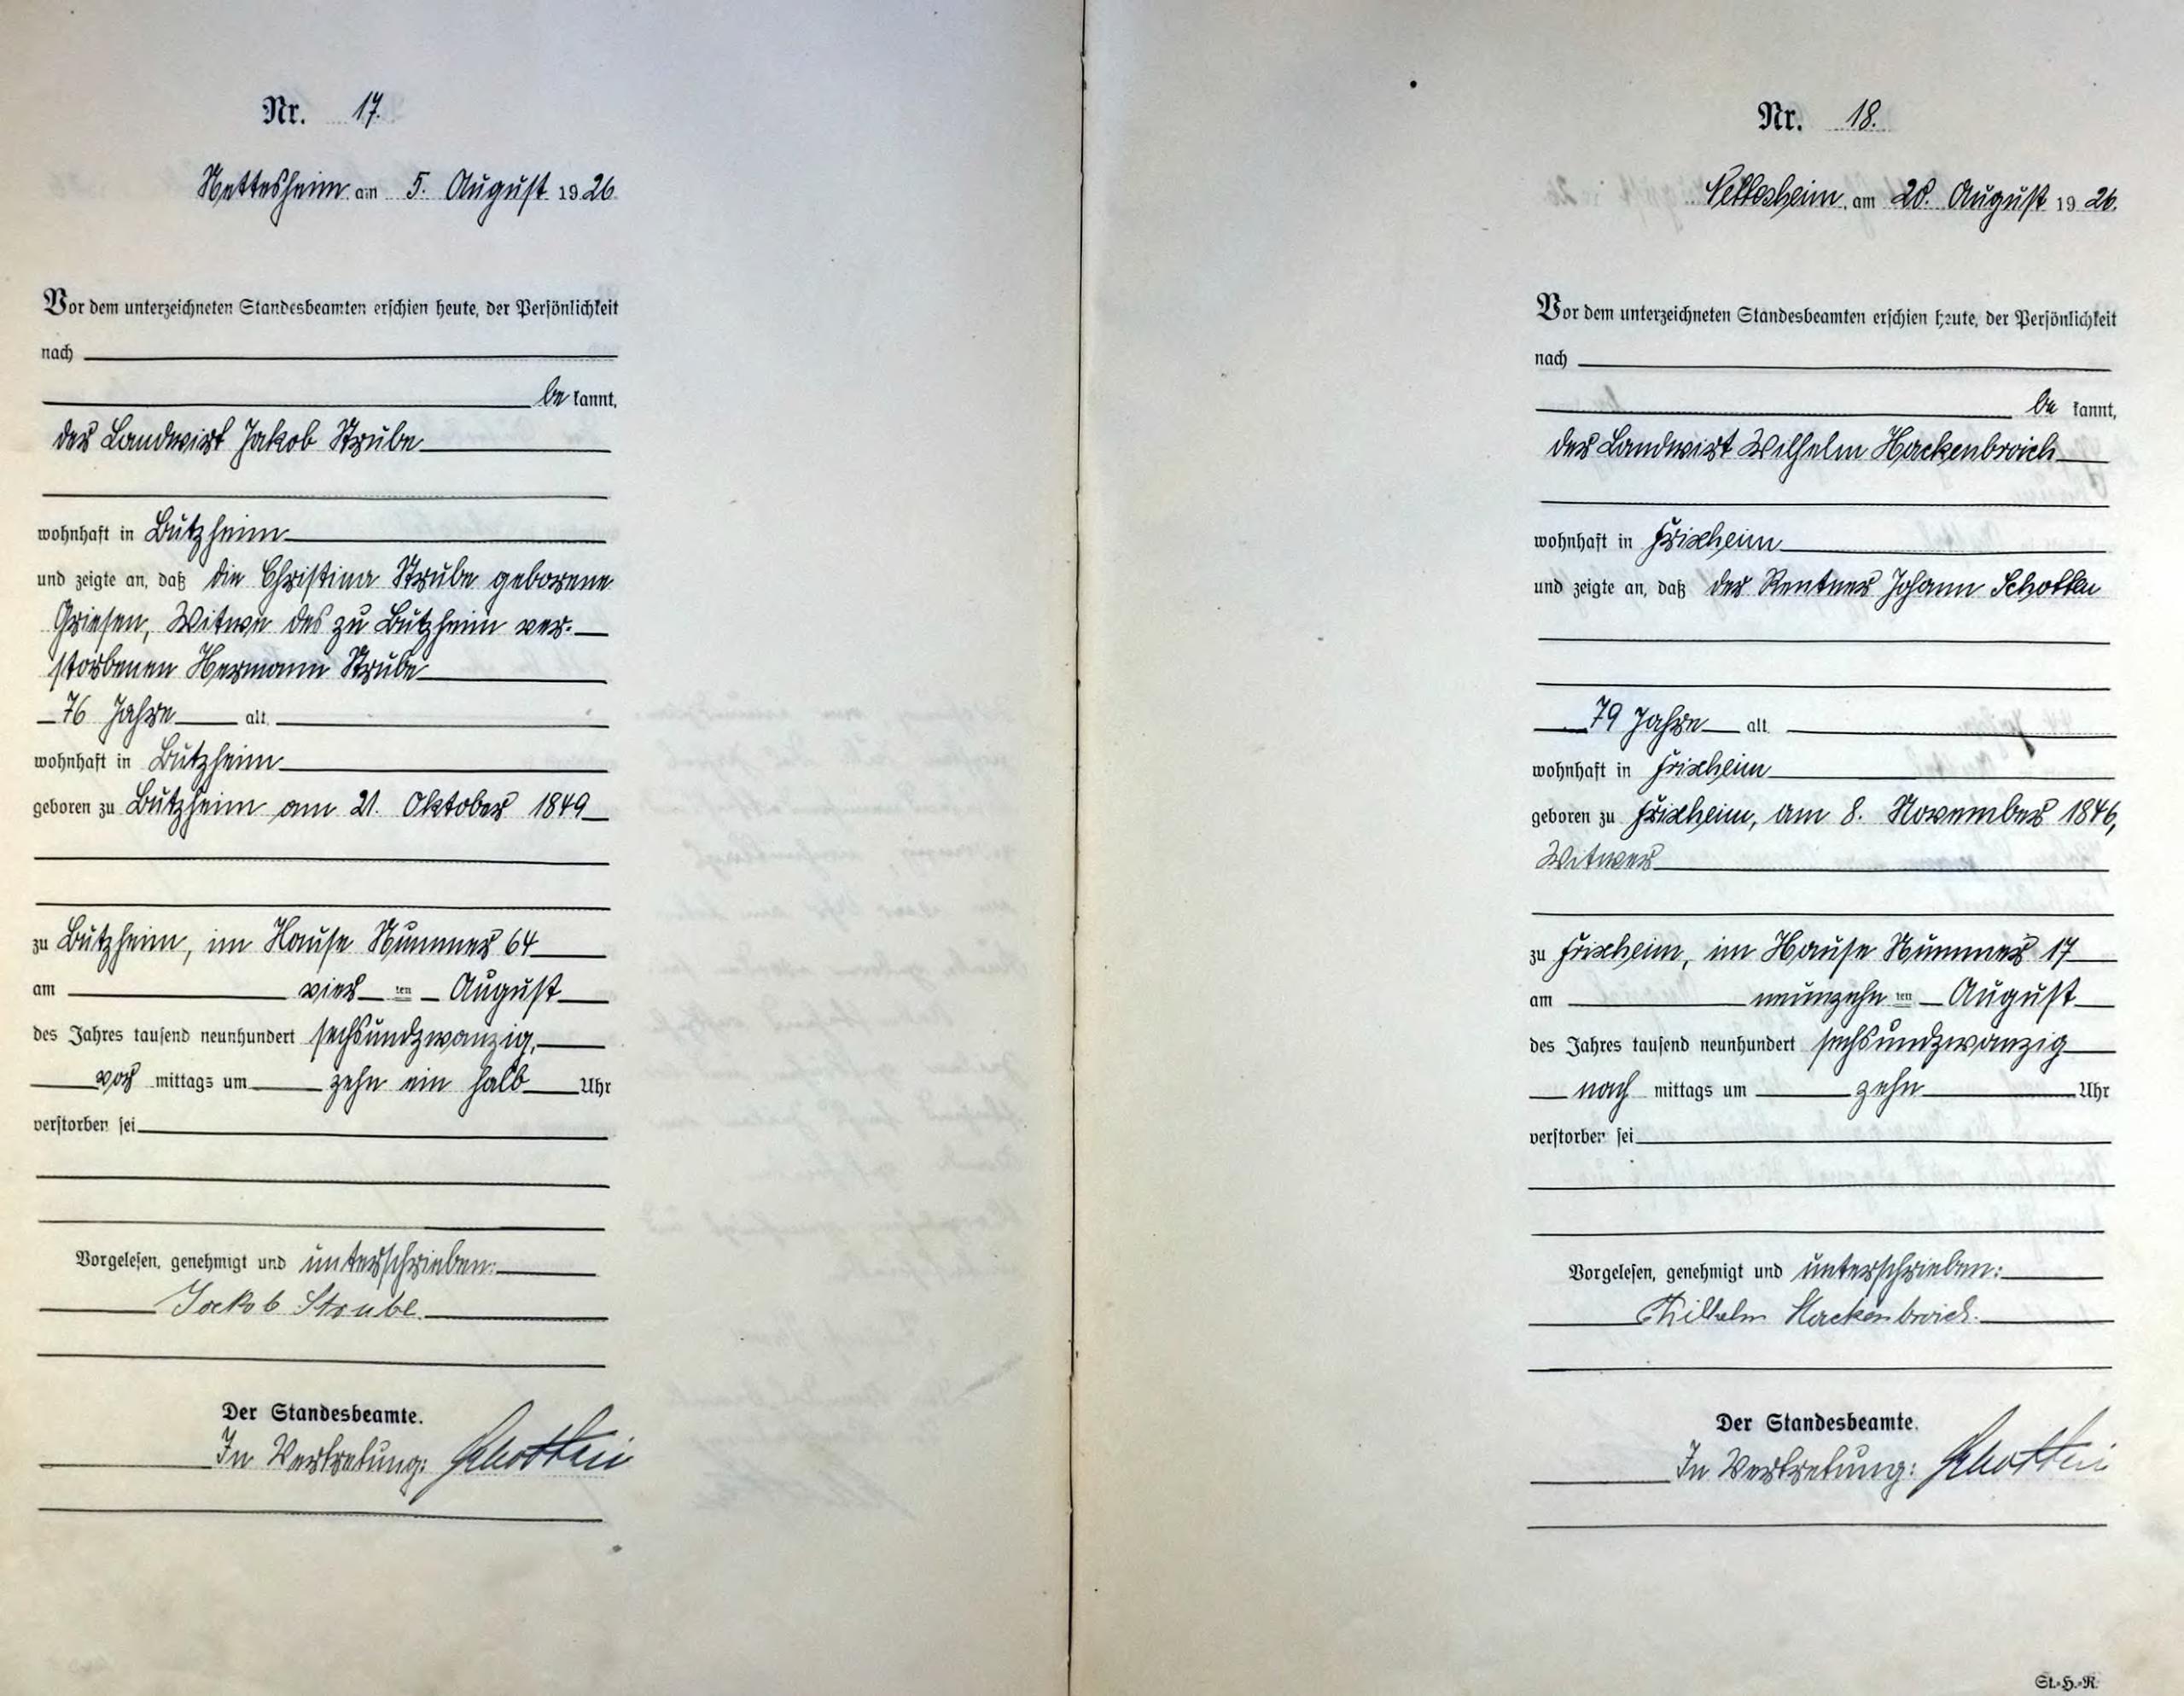 Nr. 17.
Nettesheim am 5. August 1926.
Vor dem unterzeichneten Standesbeamten erschien heute, der Persönlichkeit
nach
be kannt,
der Landwirt Jakob Strube
wohnhaft in Bützheim
und zeigte an, daß die Christina Strube geborene
Griesen, Witwe des zu Bützheim ver-
storbenen Hermann Strube
76 Jahre alt,
wohnhaft in Bützheim
geboren zu Bützheim am 21. Oktober 1849
zu Bützheim, im Hause Nummer 64
am vier ten August
des Jahres tausend neunhundert sechsundzwanzig,
vor mittags um zehn ein halb Uhr
verstorben sei
Vorgelesen, genehmigt und unterschrieben:
Jackob Strube.
Der Standesbeamte.
In Vertretung: Schotten
Nr. 18.
Nettesheim, am 20. August 1926.
Vor dem unterzeichneten Standesbeamten erschien heute, der Persönlichkeit
nach
be kannt,
der Landwirt Wilhelm Hackenbroich
wohnhaft in Frixheim
und zeigte an, daß der Rentner Johann Schotten
79 Jahre alt,
wohnhaft in Frixheim
geboren zu Frixheim, am 8. November 1846,
Witwer
zu Frixheim, im Hause Nummer 17
am neunzehn ten August
des Jahres tausend neunhundert sechsundzwanzig
nach mittags um zehn Uhr
verstorben sei
Vorgelesen, genehmigt und unterschrieben:
Wilhelm Hackenbroich.
Der Standesbeamte.
In Vertretung: Schotten
St.-H.-R.